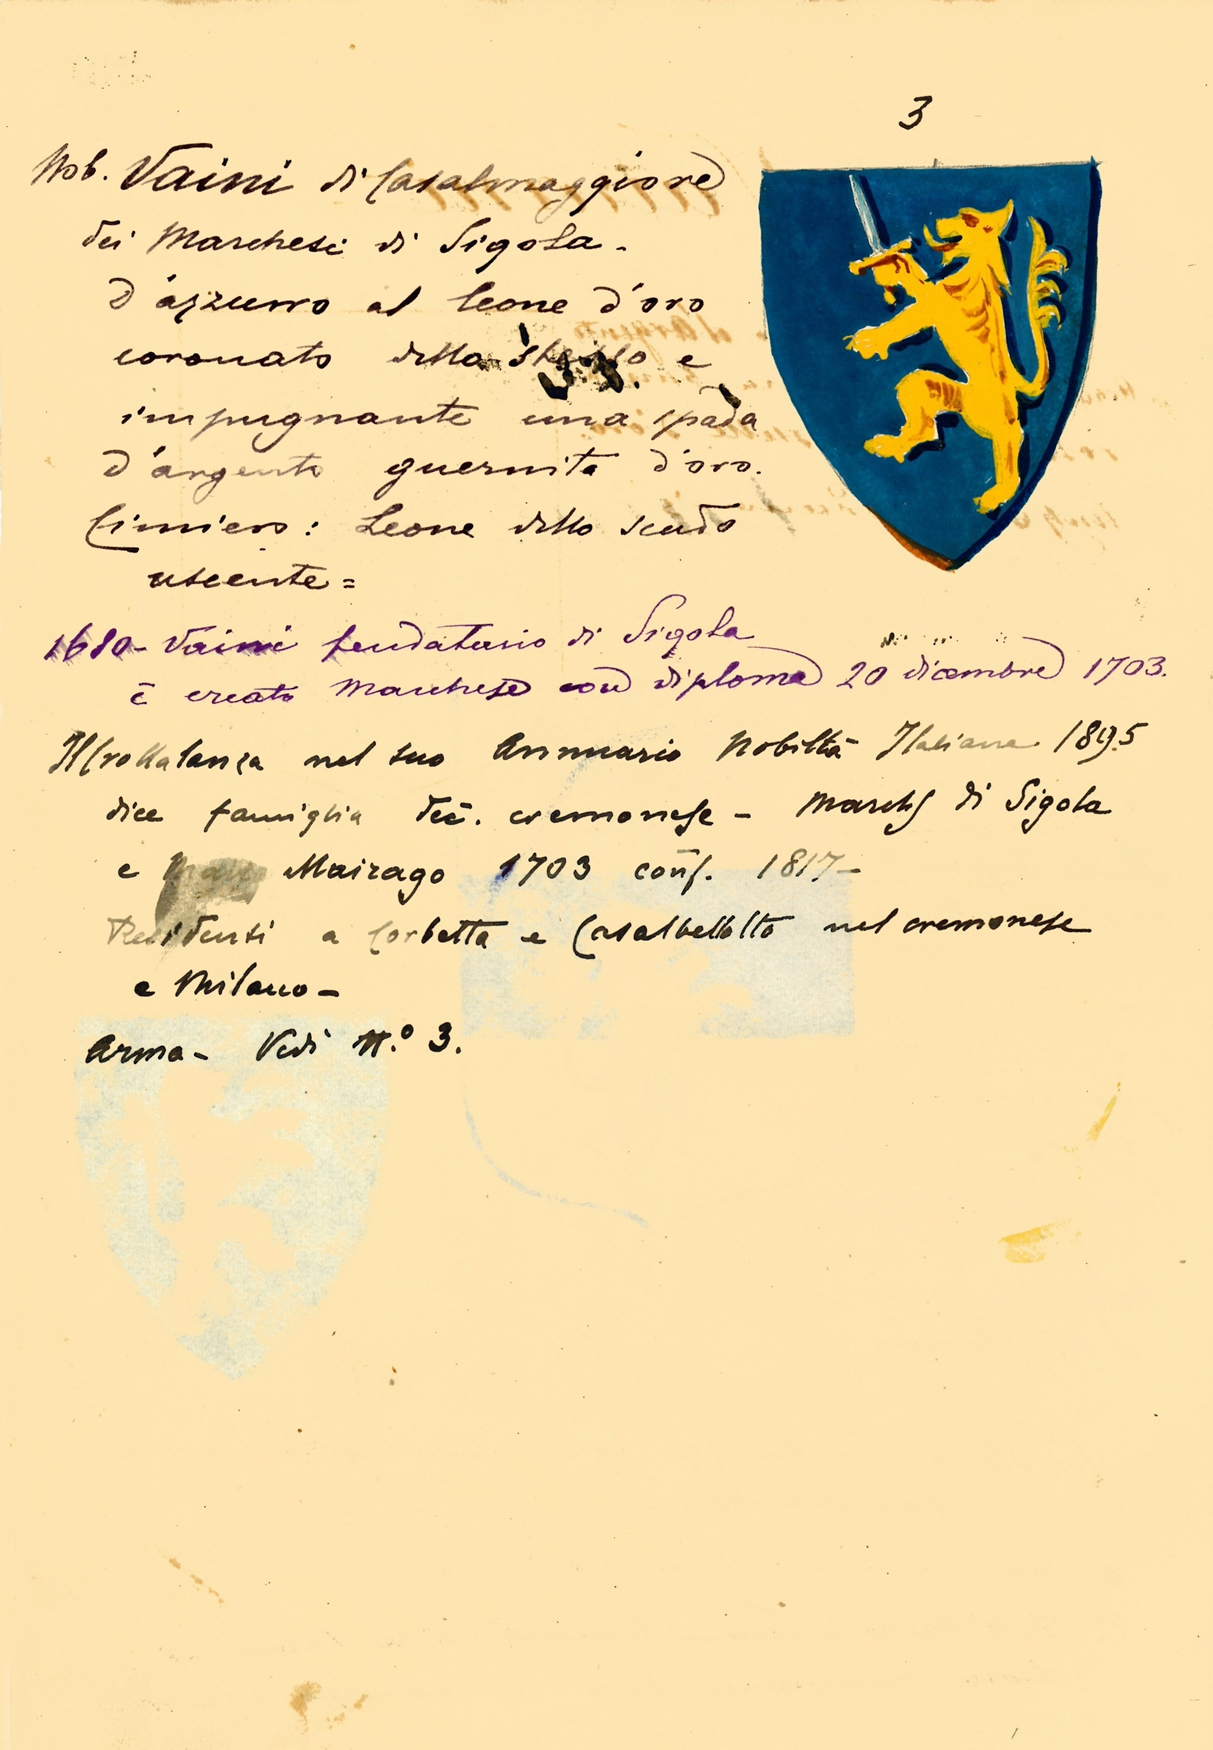 3
Nob. Vaini di Casalmaggiore
dei Marchesi di Sigola -
D'azzurro al leone d'oro
coronato dello stesso e
impugnante una spada
d'argento guernita d'oro.
Cimiero: Leone dello scudo
uscente =
1680 - Vaini feudatario di Sigola
è creato Marchese con diploma 20 dicembre 1703.
Il Crollalanza nel suo Annuario Nobiltà Italiana 1895
dice famiglia dec. cremonese - March di Sigola
e Mairago 1703 conf. 1817 -
Residenti a Corbetta e Casalbellotto nel cremonese
e Milano -
Arma - Vedi N.º 3.